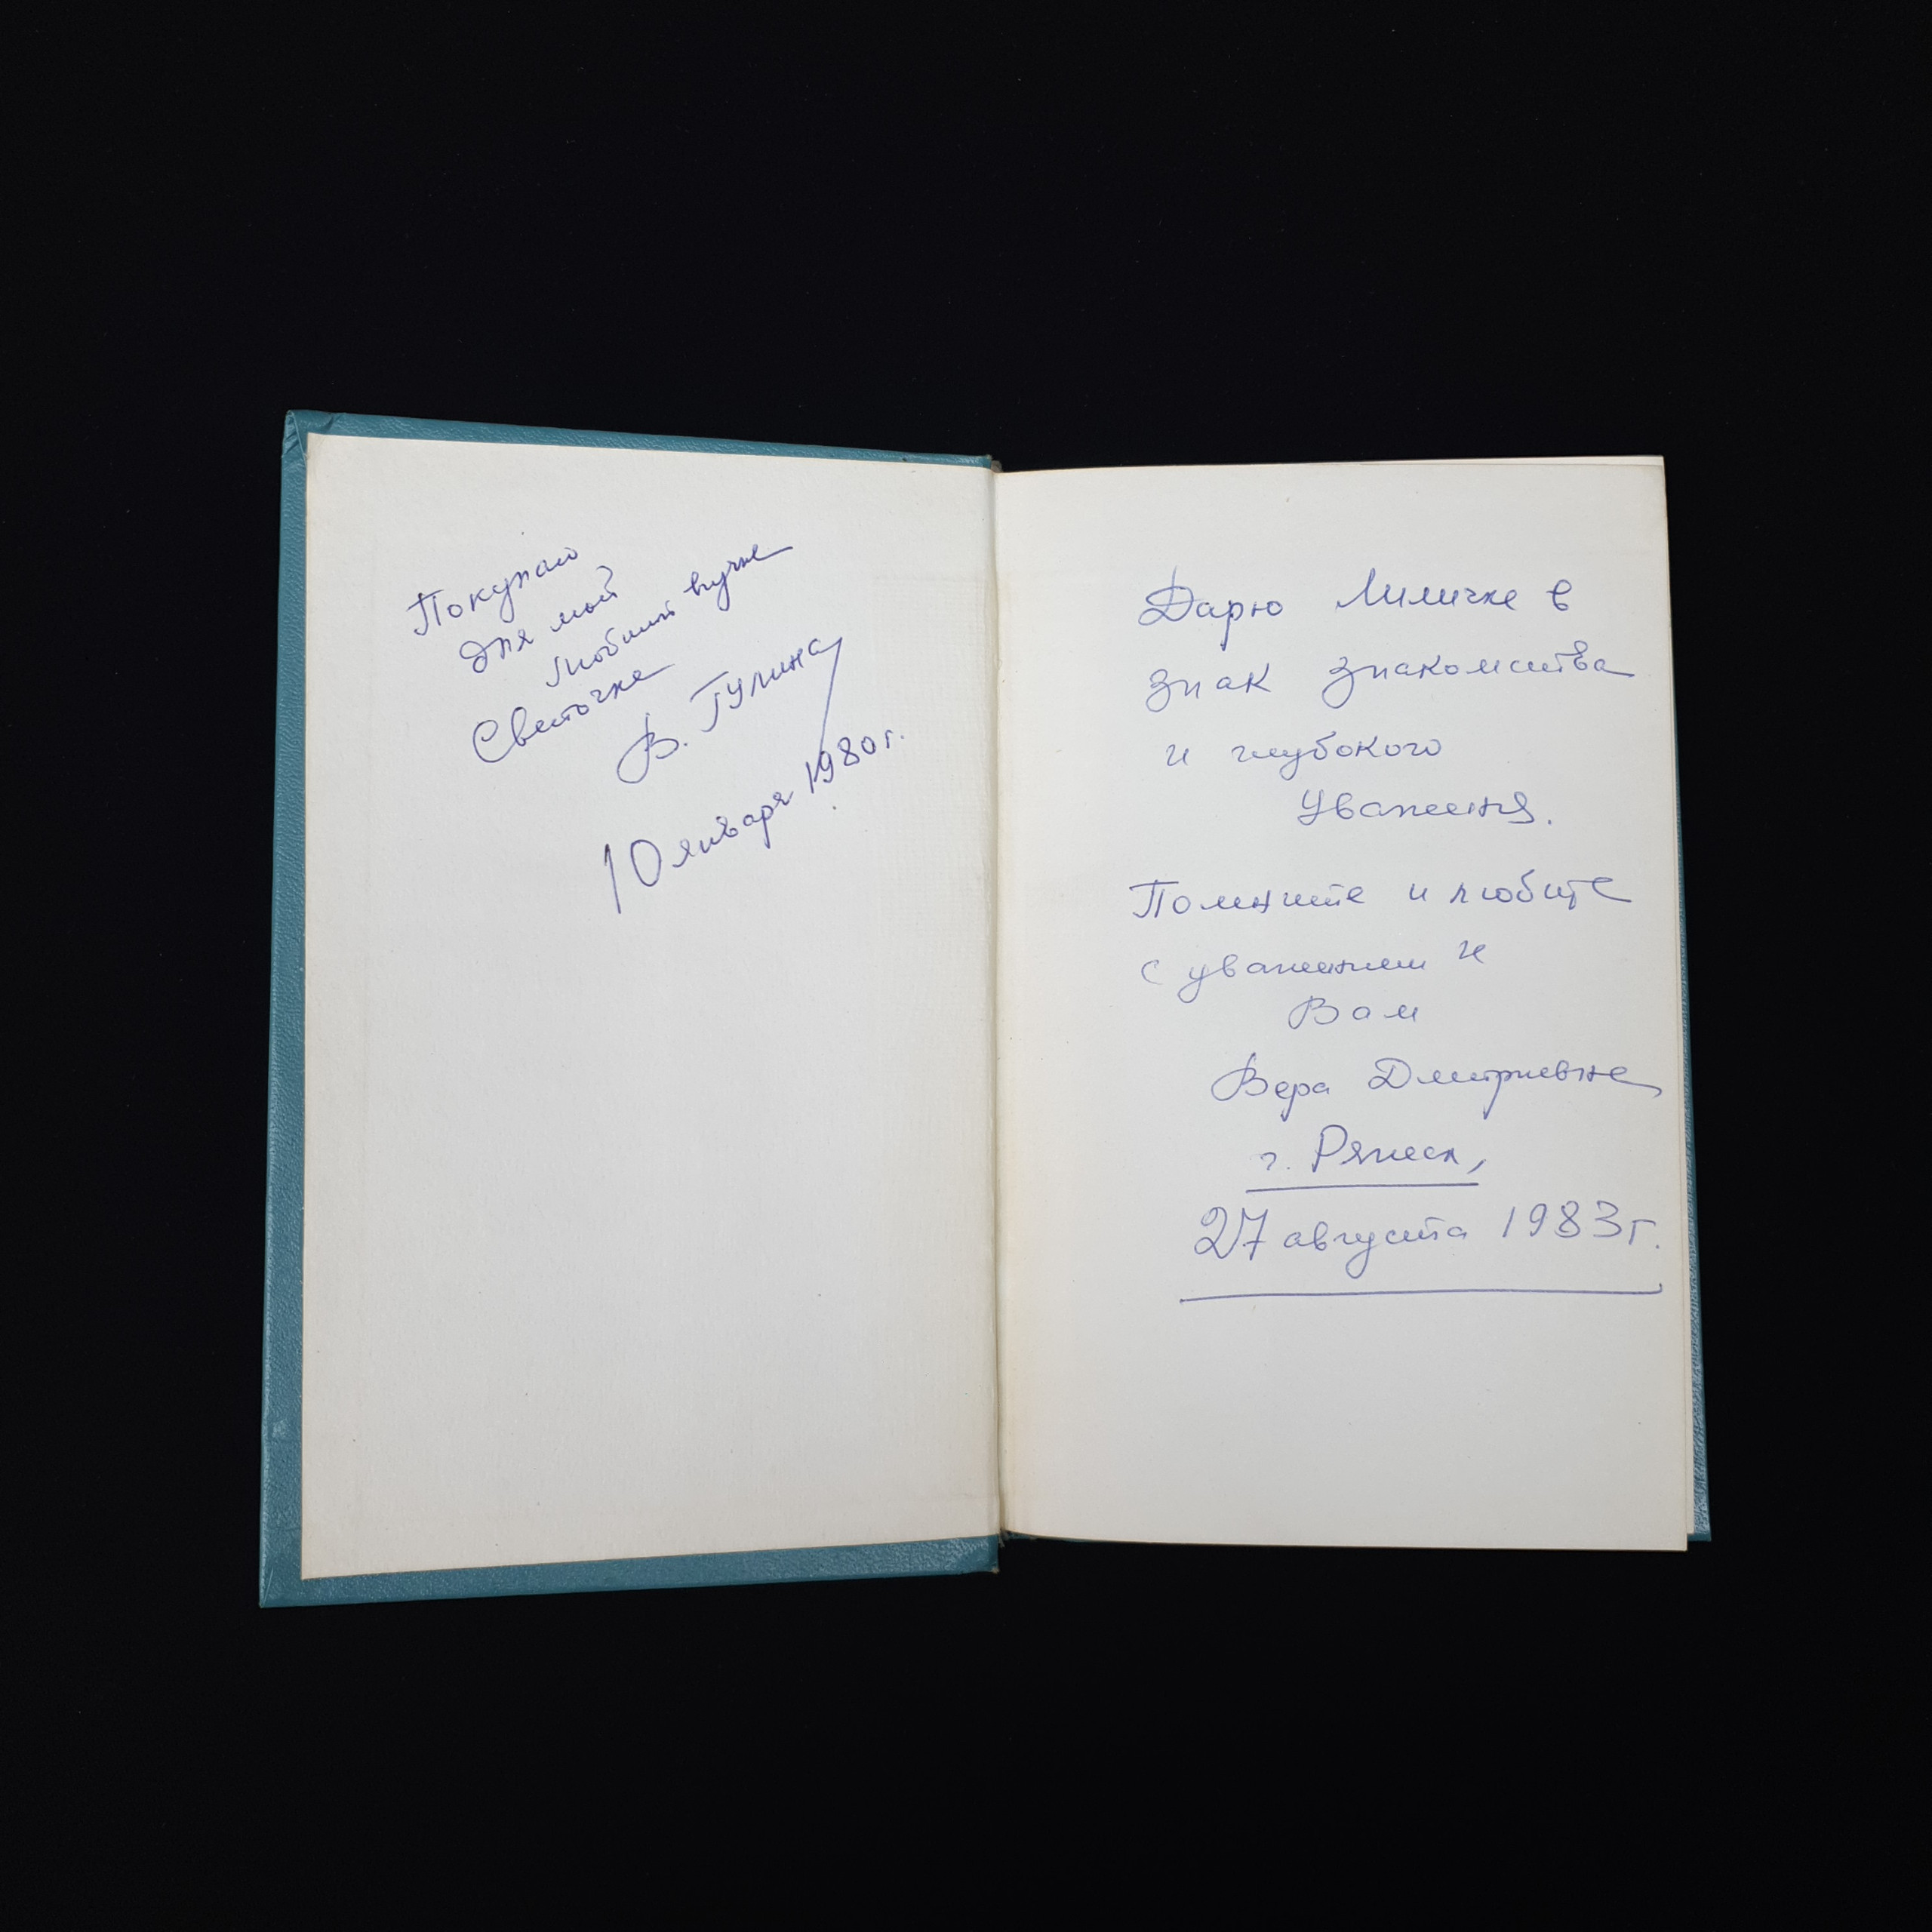 Покупаю
для моей
любимой внучке
Светочке
В. Гулина
10 января 1980 г.
Дарю Лиличке в
знак знакомства
и глубокого
уважения.
Помните и любите
с уважением к
Вам
Вера Дмитриевна
г. Ряжск,
27 августа 1983 г.